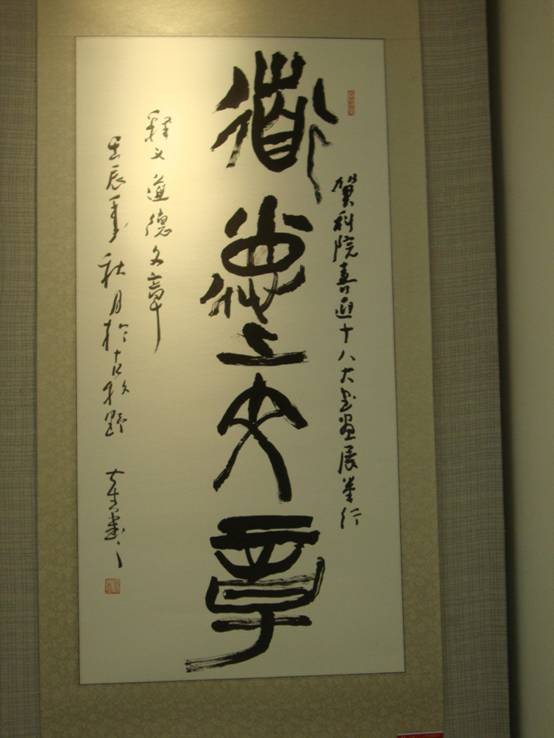 贺科院喜迎十八大书画展举行
道德文章
释文道德文章
壬辰年秋月于古牧题